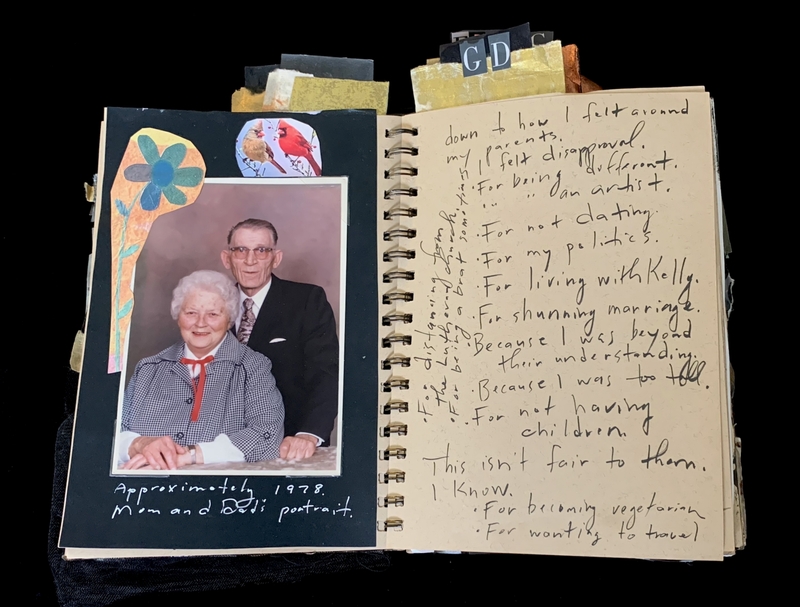 G D
down to how I felt around
my parents.
I felt disapproval.
· For being different.
" " an artist.
· For not dating.
· For my politics.
· For living with Kelly.
· For shunning marriage.
· Because I was beyond
their understanding.
· Because I was too tall.
· For not having
children.
This isn't fair to them.
I know.
· For becoming vegetarian
· For wanting to travel
· For distancing from
the Lutheran church.
· For being a brat sometimes
Approximately 1978.
Mom and Dad's portrait.